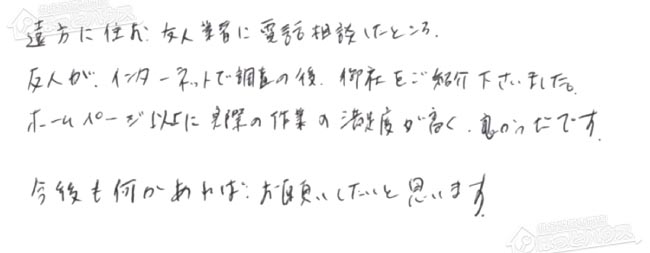 遠方に住む、友人業者に電話相談したところ、
友人が、インターネットで調査の後、御社をご紹介下さいました。
ホームページ以上に実際の作業の満足度が高く、良かったです。
今後も何かあれば、お願いしたいと思います。